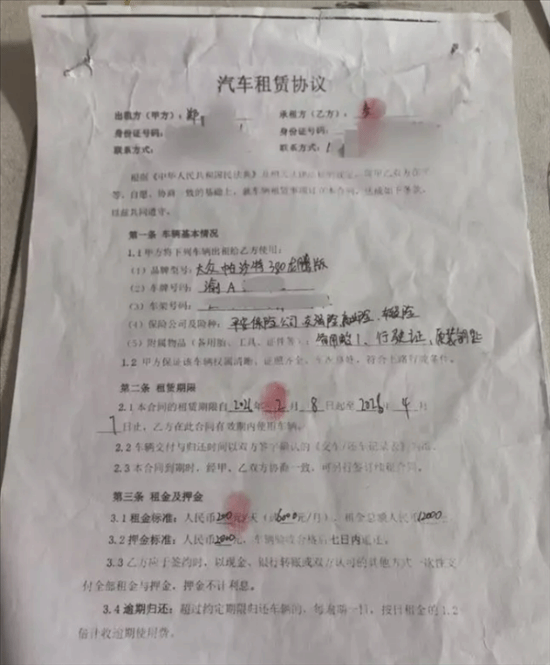 汽车租赁协议
出租方（甲方）：郑 承租方（乙方）：
身份证号码： 身份证号码：
联系方式： 联系方式：1
根据《中华人民共和国民法典》
等、自愿、协商一致的基础上，就车辆租赁事项订立本合同，达成如下条款，
以兹共同遵守。
第一条 车辆基本情况
1.1 甲方将下列车辆出租给乙方使用：
（1）品牌型号：大众帕沙特380龙腾版
（2）车牌号码：渝A
（3）车架号码：
（4）保险公司及险种：平安保险公司 交强险 商业险
（5）附属物品（备用胎、工具、证件等）：备用胎1，行驶证，原装钥匙
1.2 甲方保证该车辆权属清晰、证照齐全、符合上路行驶条件。
第二条 租赁期限
2.1 本合同的租赁期限自2026年2月8日起至2026年4月
7日止，乙方在此合同有效期内使用车辆。
2.2 车辆交付与归还时间以双方签字确认的《交车/还车记录表》为准。
2.3 本合同到期时，经甲、乙双方协商一致，可另行签订续租合同。
第三条 租金及押金
3.1 租金标准：人民币200元/天（或6000元/月），租金总额人民币12000
3.2 押金标准：人民币2000元，车辆验收合格后七日内退还。
3.3 乙方应于签约时，以现金、银行转账或双方认可的其他方式一次性支
付全部租金与押金，押金不计利息。
3.4 逾期归还：超过约定期限归还车辆的，每逾期一日，按日租金的1.2
倍计收逾期使用费。